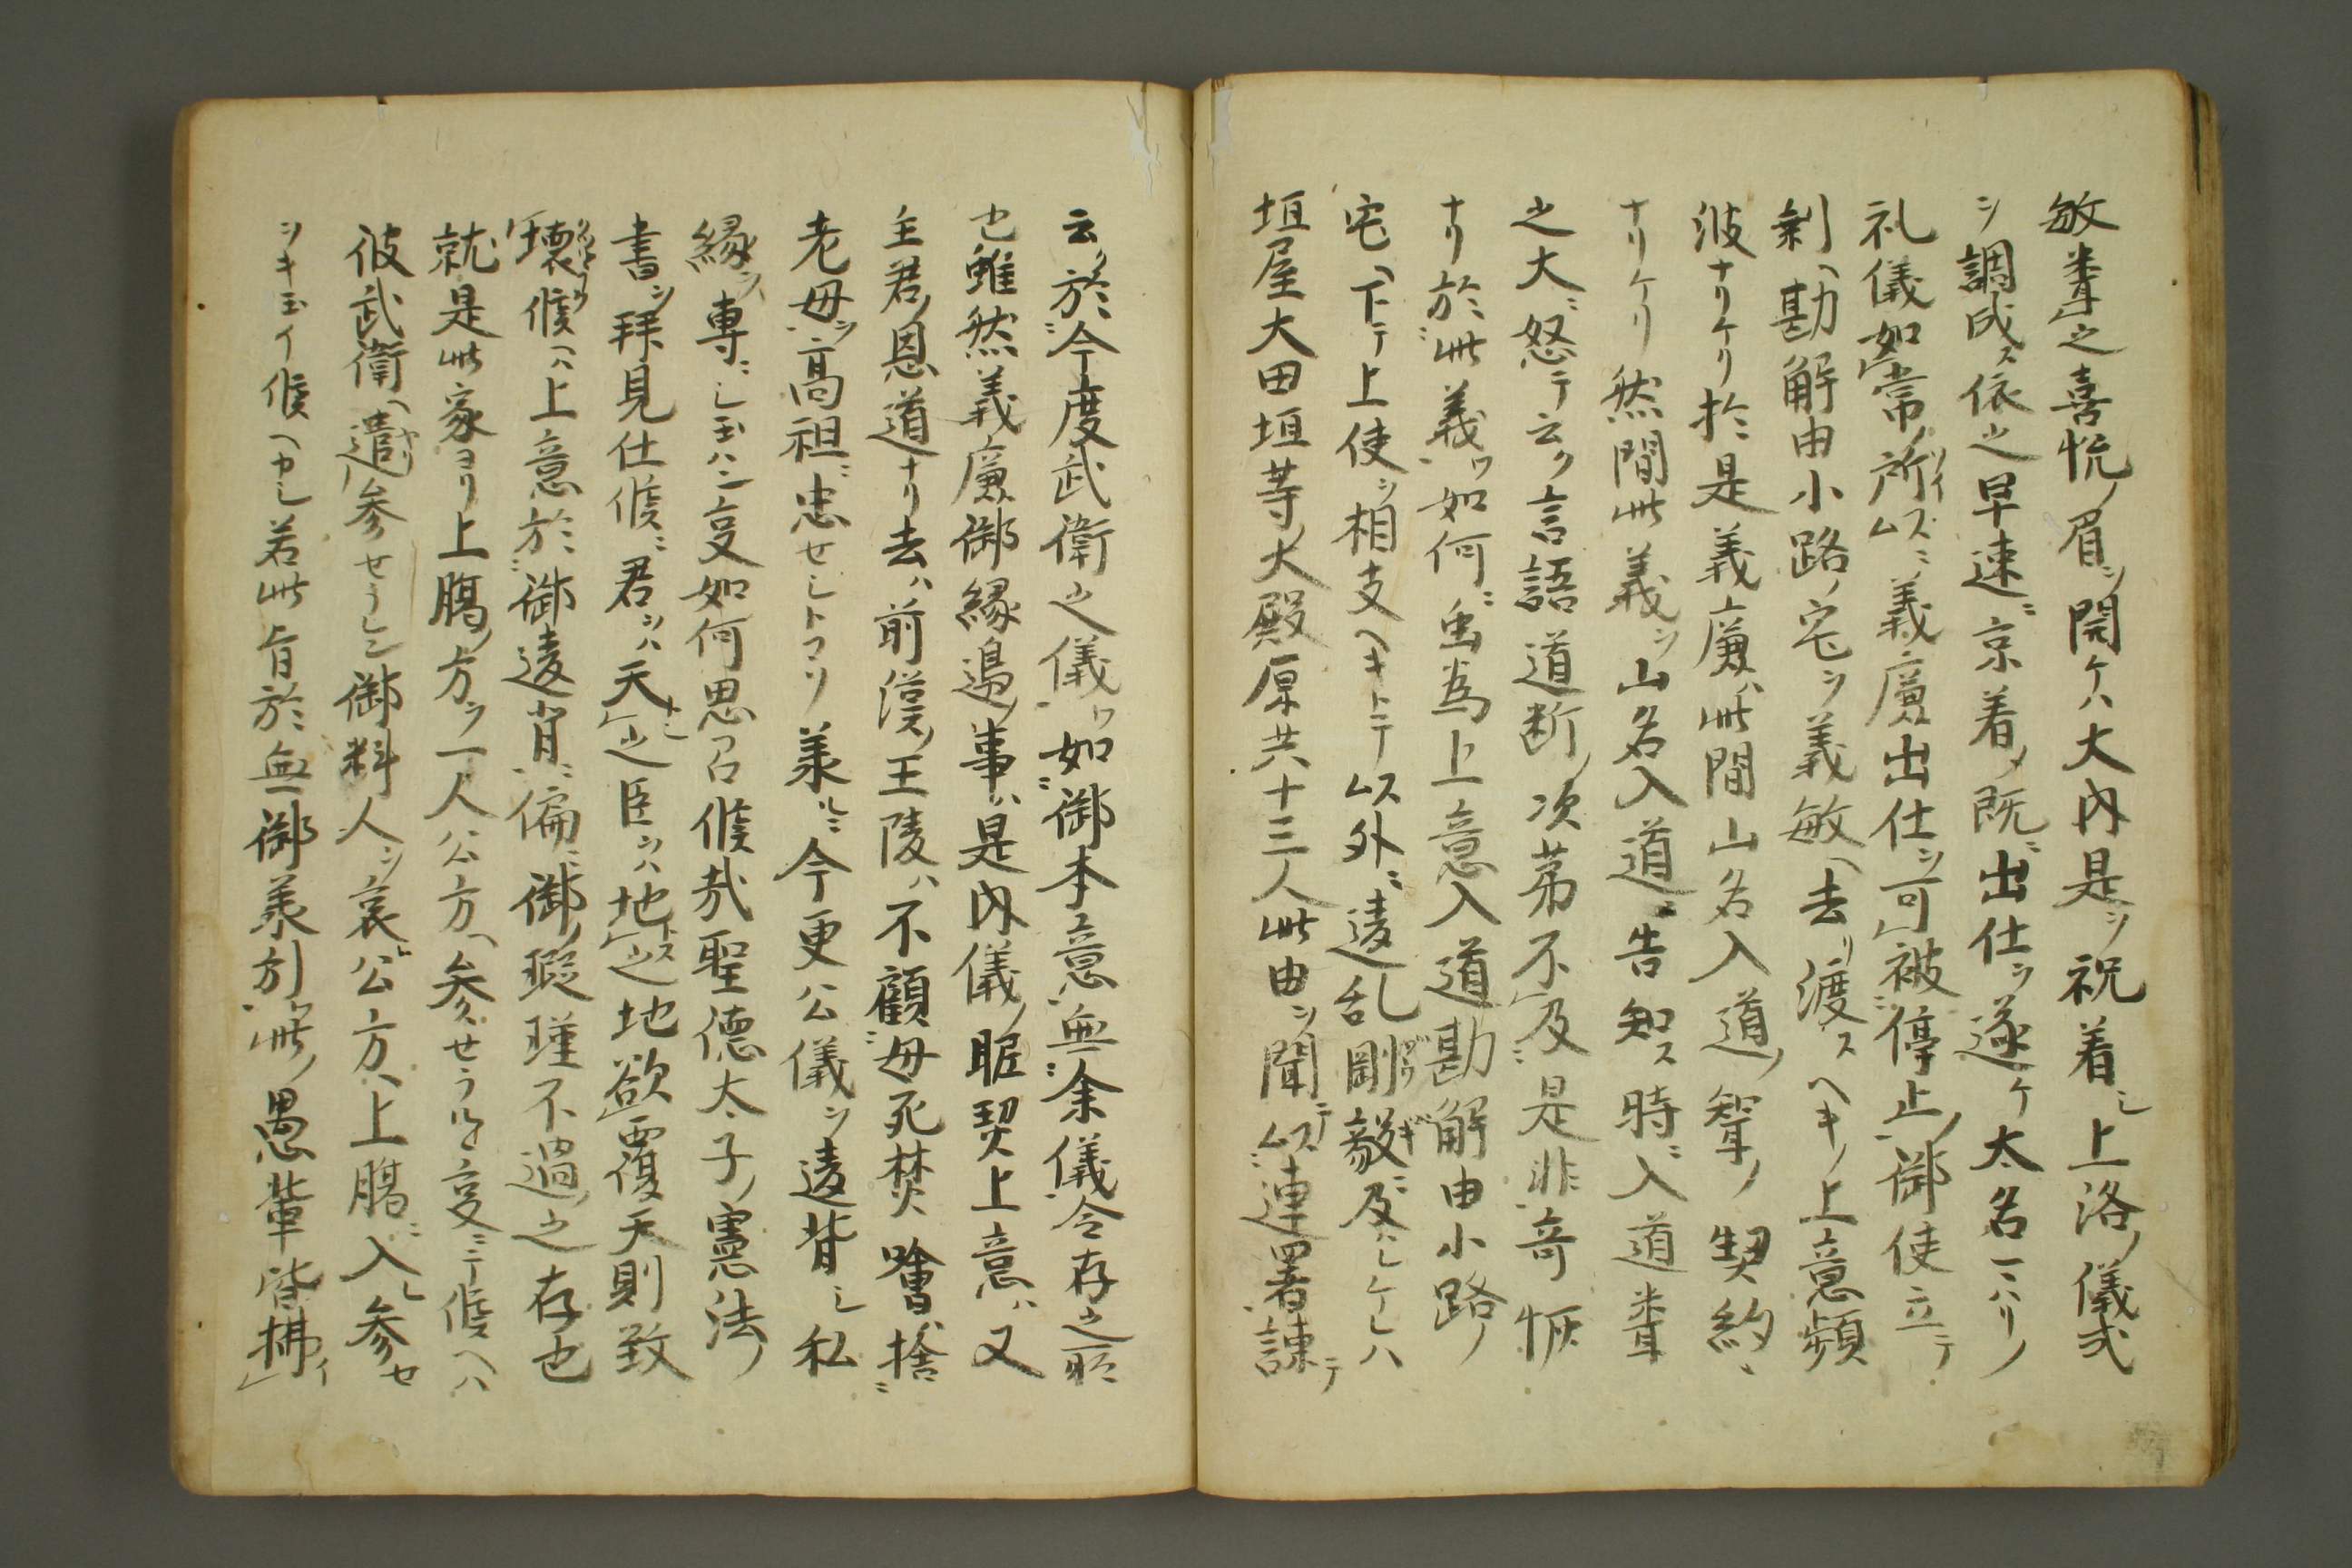 敏聾之喜恱ノ眉ヲ開ケハ大内是ヲ祝着シ上洛ノ儀式
ヲ調成ス依之早速ニ京着ノ既ニ出仕ヲ遂ケ太名一ハリノ
礼儀如常ノ所ニ義廉出仕ヲ可被停止ノ御使立テ
剰ヘ勘解由小路ノ宅ヲ義敏ヘ去リ渡スヘキノ上意頻
波ナリケリ於是義廉ハ此間山名入道ノ聟ノ契約
ナリケリ然間此義ヲ山名入道ニ告知ス時ニ入道聾
之大ニ怒テ云ク言語道断ノ次第不及是非奇恠
ナリ於此義ワ如何ニ𮥼為上意入道勘解由小路ノ
宅ヘ下テ上使ヲ相支ヘキトテ以外ニ違乱剛毅ニ及シケレハ
垣屋大田垣等ノ大殿原共十三人此由ヲ聞テ以連署諫テ
云ク於今度武衛之儀ワ如御本意無余儀令存之所
也雖然義廉御縁邉ノ事ハ是内儀ノ昵契上意ハ又
主君ノ恩道ナリ去ハ前漢ノ王陵ハ不顧母死樊噲ハ捨
老母ヲ高祖ニ忠セシトコソ羕ルニ今更公儀ヲ違背シ私
縁ヲ専ニシ玉ハン叓如何思召候哉聖徳太子ノ憲法ノ
書ヲ拜見仕候ニ君ヲハ天トシ之臣ヲハ地トス之地欲覆天則致
壊候ヘハ上意於御違背ニ偏ニ御瑕瑾不過之存也
就是此家ヨリ上臈ノ方ヲ一人公方ヘ参せうルヽ叓ニテ候ヘハ
彼武衛ヘ遣参せうレン御料人ヲ哀レ公方ヘ上臈ニ入レ参せ
ヲキ玉イ候ヘカシ若此旨於無御羕引ワ此ノ愚輩皆拂イ